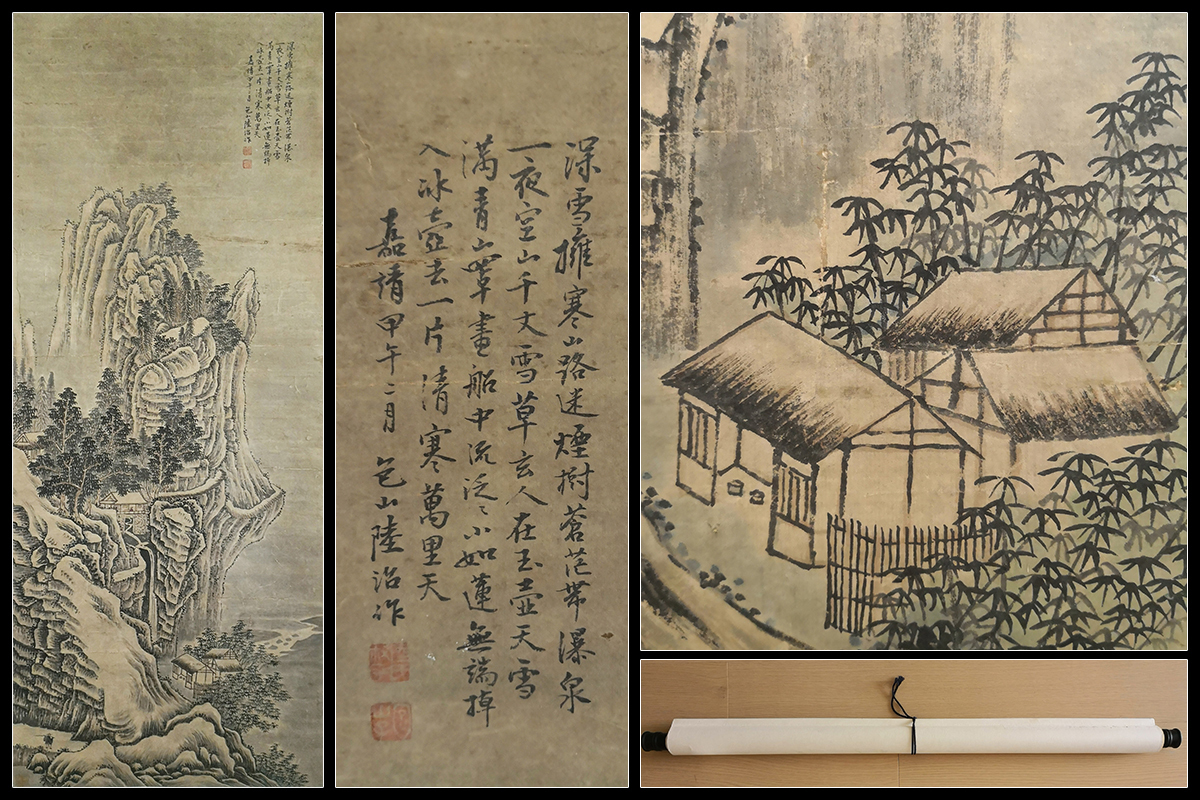 深雪擁寒山路迷煙樹蒼茫帶瀑泉
一夜空山千丈雪草玄人在玉壺天雪
滿青山罩畫船中流泛〻小如蓮無端掉
入冰壺去一片清寒萬里天
嘉靖甲午二月 包山陸治作